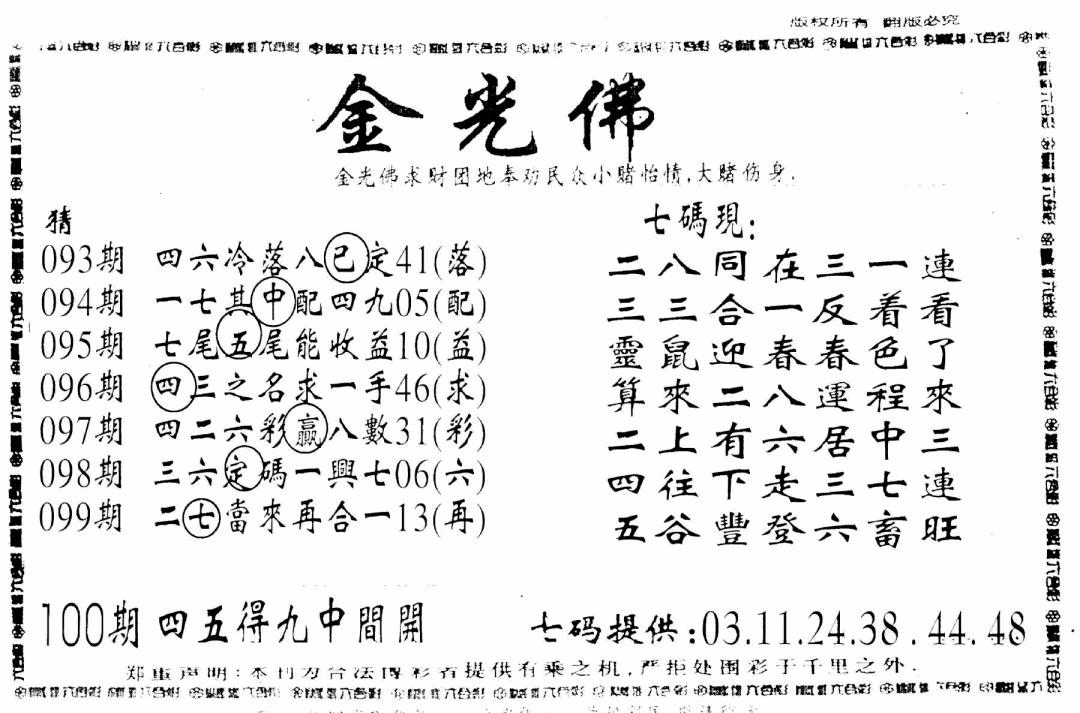 版权所有 翻版必究
金光佛
金光佛求财团地奉劝民众小赌怡情,大赌伤身.
猜
093期 四六冷落八已定41(落)
094期 一七其中配四九05(配)
095期 七尾五尾能收益10(益)
096期 四三之名求一手46(求)
097期 四二六彩贏八數31(彩)
098期 三六定碼一興七06(六)
099期 二七當來再合一13(再)
七碼現:
二八同在三一連
三三合一反着看
靈鼠迎春春色了
算來二八運程來
二上有六居中三
四往下走三七連
五谷豐登六畜旺
100期 四五得九中間開
七码提供:03.11.24.38.44.48
郑重声明:本刊为合法博彩者提供有乘之机,严拒处围彩于千里之外.